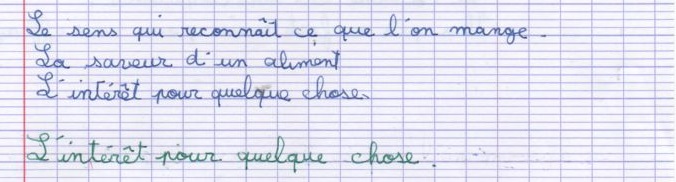 Le sens qui reconnaît ce que l'on mange.
La saveur d'un aliment
L'intérêt pour quelque chose.
L'intérêt pour quelque chose.